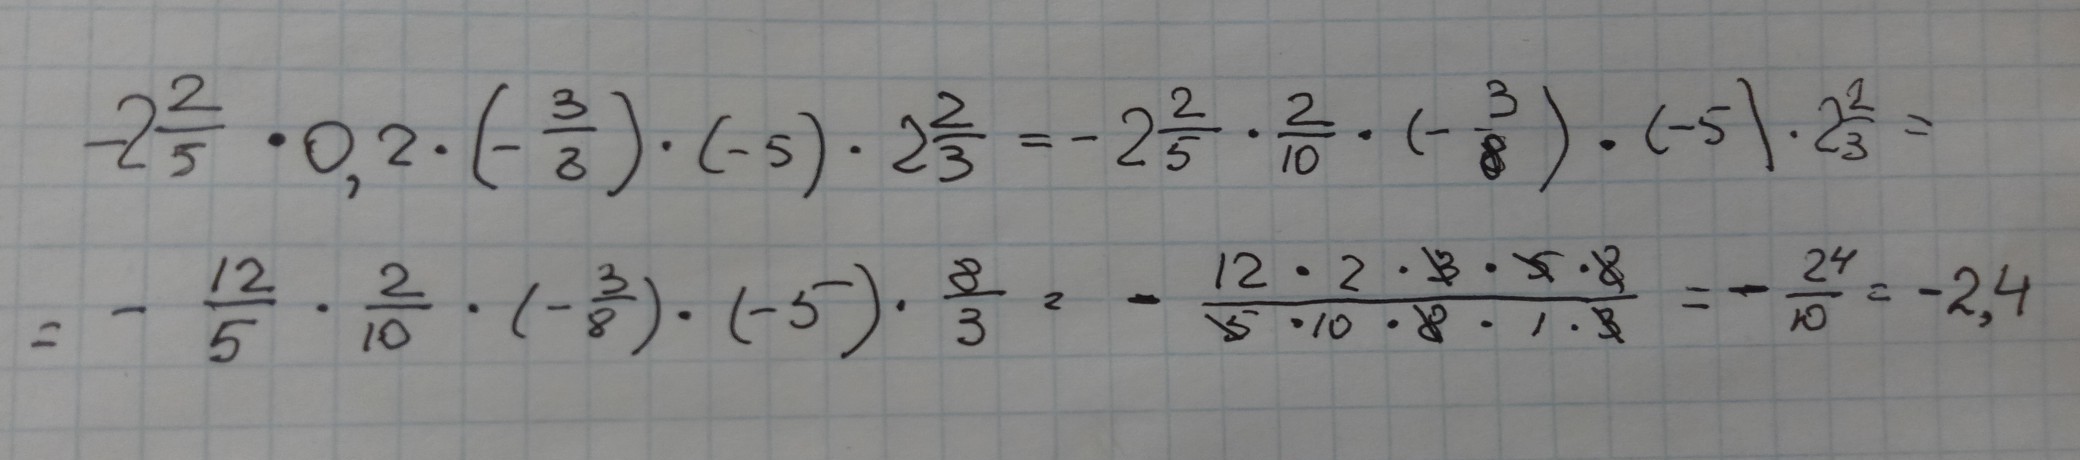 -2 2/5 · 0,2 · (- 3/8) · (-5) · 2 2/3 = -2 2/5 · 2/10 · (- 3/8) · (-5) · 2 2/3 =
= - 12/5 · 2/10 · (- 3/8) · (-5) · 8/3 = - (12 · 2 · 3 · 5 · 8)/(5 · 10 · 8 · 1 · 3) = - 24/10 = -2,4